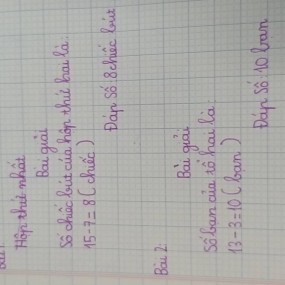 Bài 1
Hộp thứ nhất
Bài giải
Số chiếc bút của hộp thứ hai là:
15-7=8 (chiếc)
Đáp số: 8 chiếc bút
Bài 2
Bài giải
Số bạn của tổ hai là:
13-3=10 (bạn)
Đáp số: 10 bạn